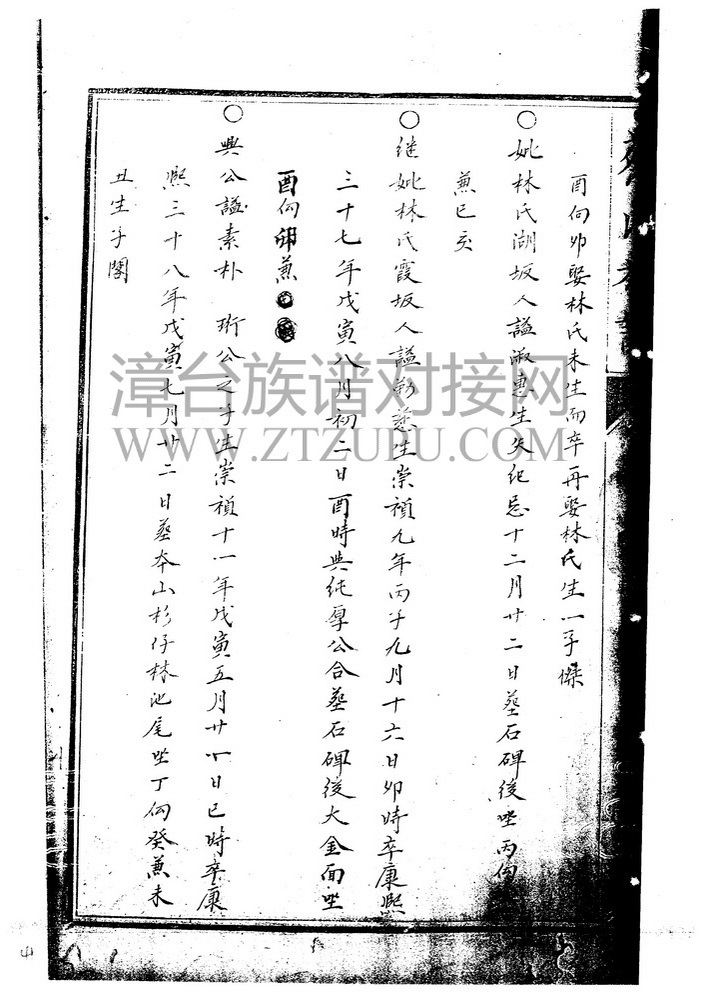 酉向卯娶林氏未生而卒再娶林氏生一子傑
○妣林氏湖坂人謚淑惠生失紀忌十二月廿二日葬石碑後坐丙向
兼巳亥
○继妣林氏霞坂人謚勤慈生崇禎九年丙子九月十六日卯時卒康熙
三十七年戊寅八月初二日酉時與純厚公合葬石碑後大金面坐
酉向卯兼
○與公謚素朴 珩公之子生崇禎十一年戊寅五月廿八日巳時卒康
熙三十八年戊寅七月廿二日葬本山杉仔林池尾坐丁向癸兼未
丑生子閣
漳台族谱对接网
WWW.ZTZUPU.COM